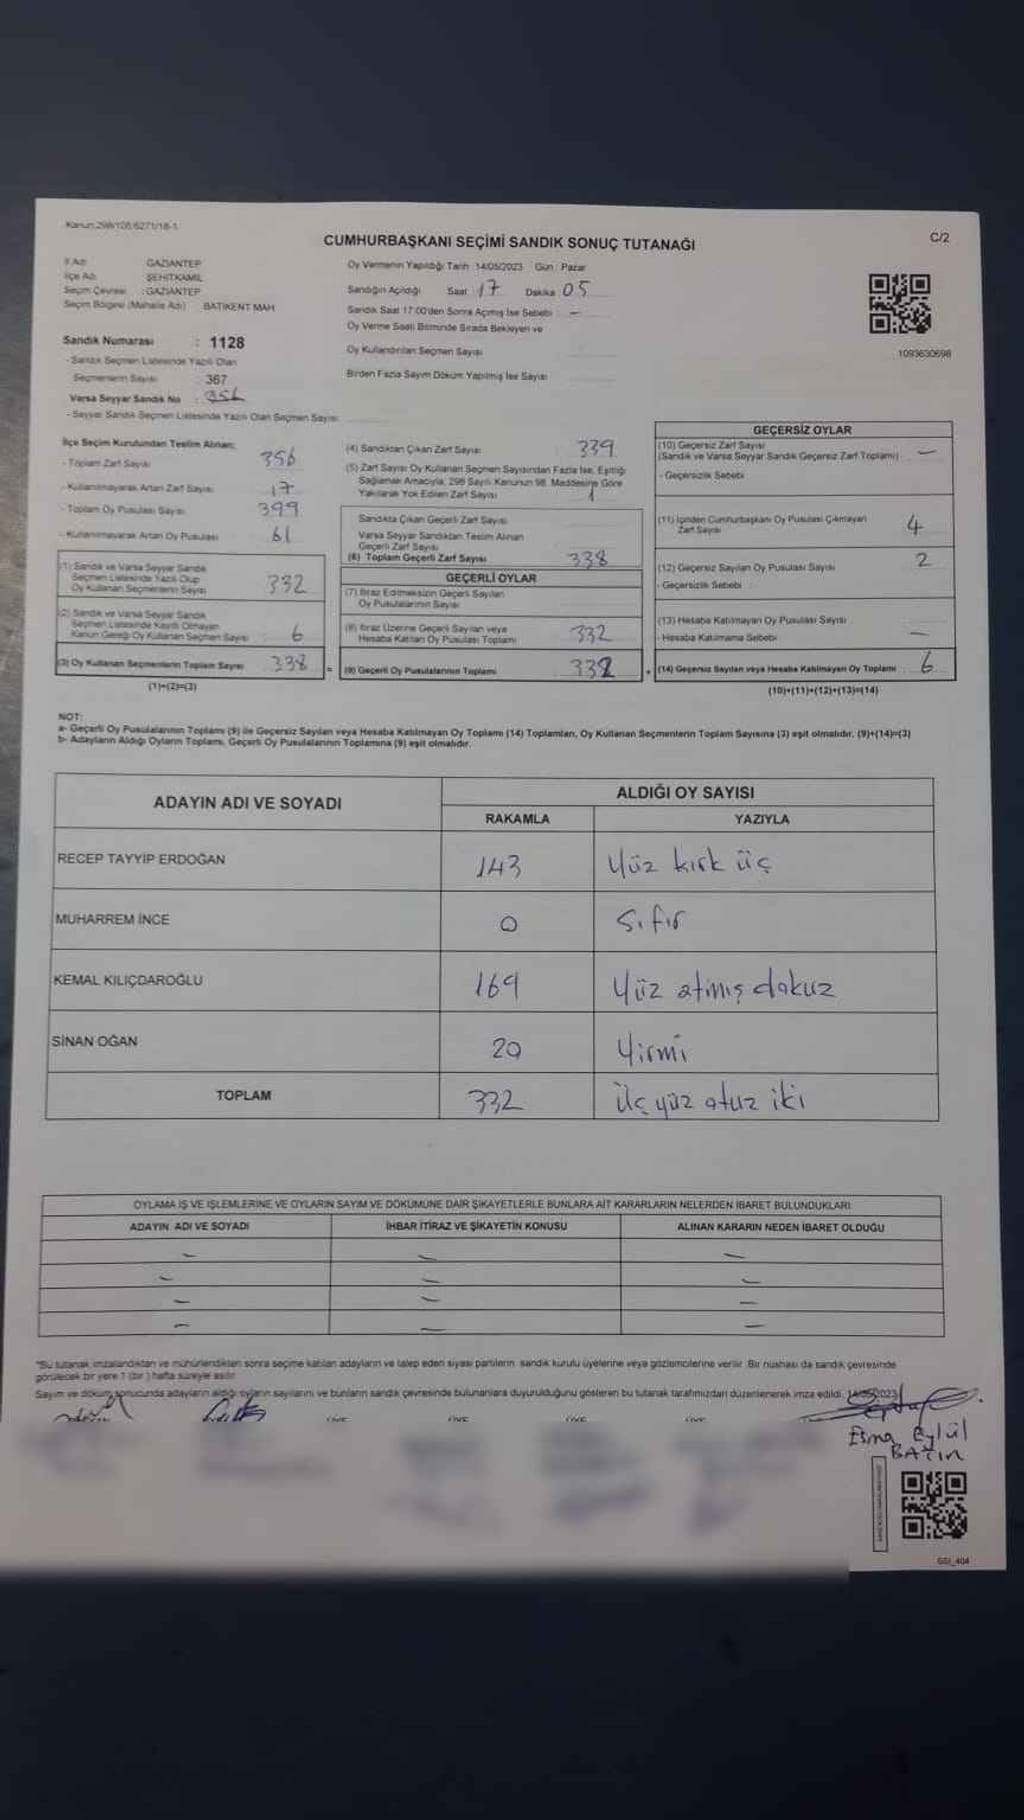 Kanun:298/105/6271/18-1
C/2
CUMHURBAŞKANI SEÇİMİ SANDIK SONUÇ TUTANAĞI
İl Adı GAZİANTEP
İlçe Adı ŞEHİTKAMİL
Seçim Çevresi : GAZİANTEP
Seçim Bölgesi (Mahalle Adı) BATIKENT MAH
Oy Vermenin Yapıldığı Tarih 14/05/2023 Gün : Pazar
Sandığın Açıldığı Saat 17 Dakika 05
Sandık Saat 17:00'den Sonra Açımış İse Sebebi : -
Oy Verme Saati Bitiminde Sırada Bekleyen ve
Oy Kullandırılan Seçmen Sayısı
Birden Fazla Sayım Döküm Yapılmış İse Sayısı
1093630698
Sandık Numarası : 1128
- Sandık Seçmen Listesinde Yazılı Olan
Seçmenlerin Sayısı : 367
Varsa Seyyar Sandık No :
- Seyyar Sandık Seçmen Listesinde Yazılı Olan Seçmen Sayısı
İlçe Seçim Kurulundan Teslim Alınan;
- Toplam Zarf Sayısı 356
- Kullanılmayarak Artan Zarf Sayısı 17
- Toplam Oy Pusulası Sayısı 399
- Kullanılmayarak Artan Oy Pusulası 61
(1) Sandık ve Varsa Seyyar Sandık
Seçmen Listesinde Yazılı Olup
Oy Kullanan Seçmenlerin Sayısı 332
(2) Sandık ve Varsa Seyyar Sandık
Seçmen Listesinde Kayıtlı Olmayan
Kanun Gereği Oy Kullanan Seçmen Sayısı 6
(3) Oy Kullanan Seçmenlerin Toplam Sayısı 338 =
(1)+(2)=(3)
(4) Sandıktan Çıkan Zarf Sayısı 339
(5) Zarf Sayısı Oy Kullanan Seçmen Sayısından Fazla İse, Eşitliği
Sağlamak Amacıyla; 298 Sayılı Kanunun 98. Maddesine Göre
Yakılarak Yok Edilen Zarf Sayısı 1
Sandıkta Çıkan Geçerli Zarf Sayısı
Varsa Seyyar Sandıktan Teslim Alınan
Geçerli Zarf Sayısı
(6) Toplam Geçerli Zarf Sayısı 338
GEÇERLİ OYLAR
(7) İtiraz Edilmeksizin Geçerli Sayılan
Oy Pusulalarının Sayısı
(8) İtiraz Üzerine Geçerli Sayılan veya
Hesaba Katılan Oy Pusulası Toplamı 332
(9) Geçerli Oy Pusulalarının Toplamı 332 +
GEÇERSİZ OYLAR
(10) Geçersiz Zarf Sayısı
(Sandık ve Varsa Seyyar Sandık Geçersiz Zarf Toplamı) -
- Geçersizlik Sebebi
(11) İçinden Cumhurbaşkanı Oy Pusulası Çıkmayan
Zarf Sayısı 4
(12) Geçersiz Sayılan Oy Pusulası Sayısı 2
- Geçersizlik Sebebi
(13) Hesaba Katılmayan Oy Pusulası Sayısı
- Hesaba Katılmama Sebebi -
(14) Geçersiz Sayılan veya Hesaba Katılmayan Oy Toplamı 6
(10)+(11)+(12)+(13)=(14)
NOT:
a- Geçerli Oy Pusulalarının Toplamı (9) ile Geçersiz Sayılan veya Hesaba Katılmayan Oy Toplamı (14) Toplamları, Oy Kullanan Seçmenlerin Toplam Sayısına (3) eşit olmalıdır. (9)+(14)=(3)
b- Adayların Aldığı Oyların Toplamı, Geçerli Oy Pusulalarının Toplamına (9) eşit olmalıdır.
ADAYIN ADI VE SOYADI
ALDIĞI OY SAYISI
RAKAMLA YAZIYLA
RECEP TAYYİP ERDOĞAN 143 Yüz kırk üç
MUHARREM İNCE 0 Sıfır
KEMAL KILIÇDAROĞLU 169 Yüz atmış dokuz
SİNAN OĞAN 20 Yirmi
TOPLAM 332 Üç yüz otuz iki
OYLAMA İŞ VE İŞLEMLERİNE VE OYLARIN SAYIM VE DÖKÜMÜNE DAİR ŞİKAYETLERLE BUNLARA AİT KARARLARIN NELERDEN İBARET BULUNDUKLARI
ADAYIN ADI VE SOYADI İHBAR İTİRAZ VE ŞİKAYETİN KONUSU ALINAN KARARIN NEDEN İBARET OLDUĞU
- - -
- - -
- - -
- - -
"Bu tutanak imzalandıktan ve mühürlendikten sonra seçime katılan adayların ve talep eden siyasi partilerin sandık kurulu üyelerine veya gözlemcilerine verilir. Bir nüshası da sandık çevresinde
görülecek bir yere 1 (bir) hafta süreyle asılır.
Sayım ve döküm sonucunda adayların aldığı oyların sayılarını ve bunların sandık çevresinde bulunanlara duyurulduğunu gösteren bu tutanak tarafımızdan düzenlenerek imza edildi. 14/05/2023
Esma Eylül
GSI_404